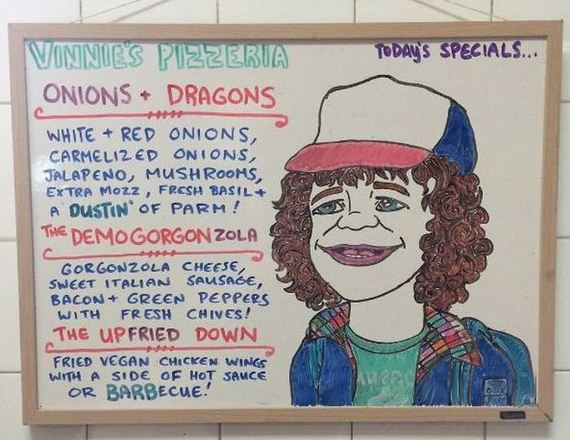 VINNIE'S PIZZERIA
TODAY'S SPECIALS...
ONIONS + DRAGONS
WHITE + RED ONIONS,
CARMELIZED ONIONS,
JALAPENO, MUSHROOMS,
EXTRA MOZZ, FRESH BASIL +
A "DUSTIN" OF PARM!
THE DEMOGORGONZOLA
GORGONZOLA CHEESE,
SWEET ITALIAN SAUSAGE,
BACON + GREEN PEPPERS
WITH FRESH CHIVES!
THE UPFRIED DOWN
FRIED VEGAN CHICKEN WINGS
WITH A SIDE OF HOT SAUCE
OR BARBECUE!